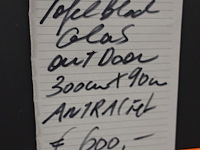 Tafelblad
Glas
OUTDOOR
300cm x 90cm
ANTRACiet
€ 600,-